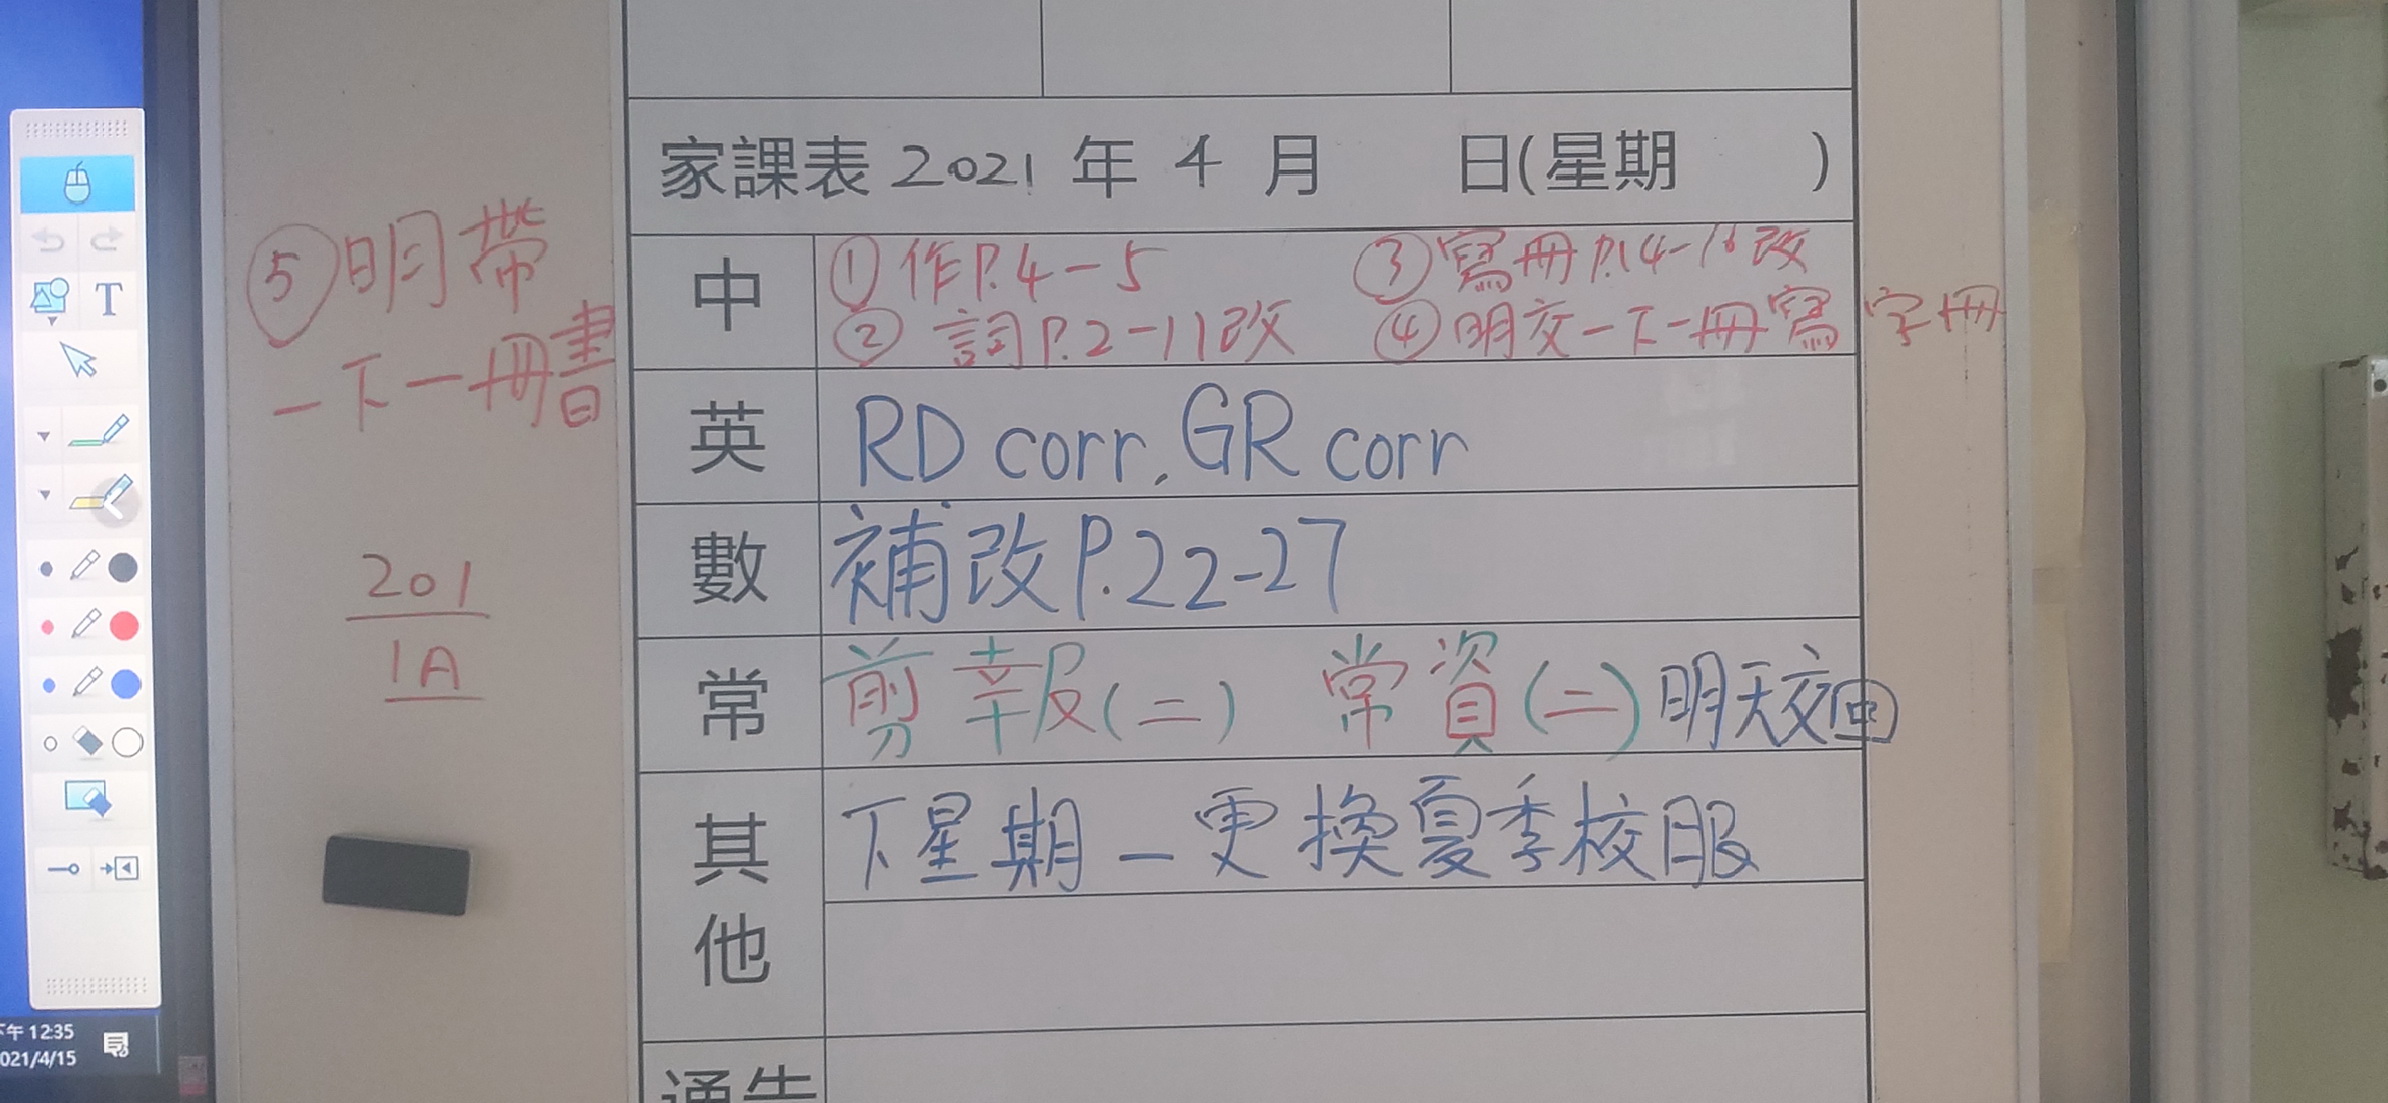 家課表 2021 年 4 月 日(星期 )
中
① 作P.4-5 ③ 寫冊P.14-16改
② 詞P.2-11改 ④ 明交一下一冊寫字冊
⑤ 明帶
一下一冊書
英
RD corr, GR corr
數
補改P.22-27
201
1A
常
剪報(二) 常資(二)明天交
其他
下星期一更換夏季校服
通告
T
下午 12:35
2021/4/15